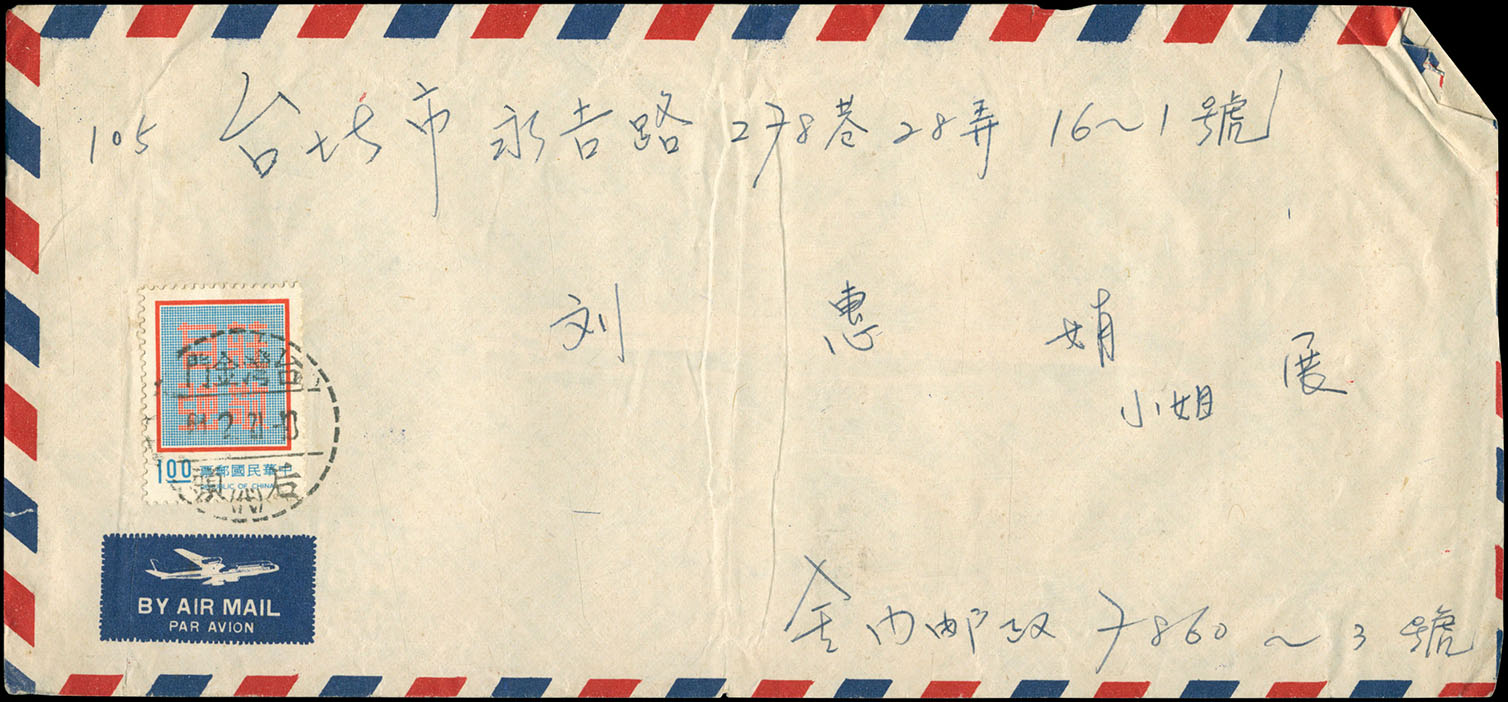 105 台北市 永吉路 278巷 28弄 16~1號
刘 惠 娟 小姐 展
門金灣台
1.00 票郵國民華中
REPUBLIC OF CHINA
BY AIR MAIL
PAR AVION
金门邮政 7860~3號